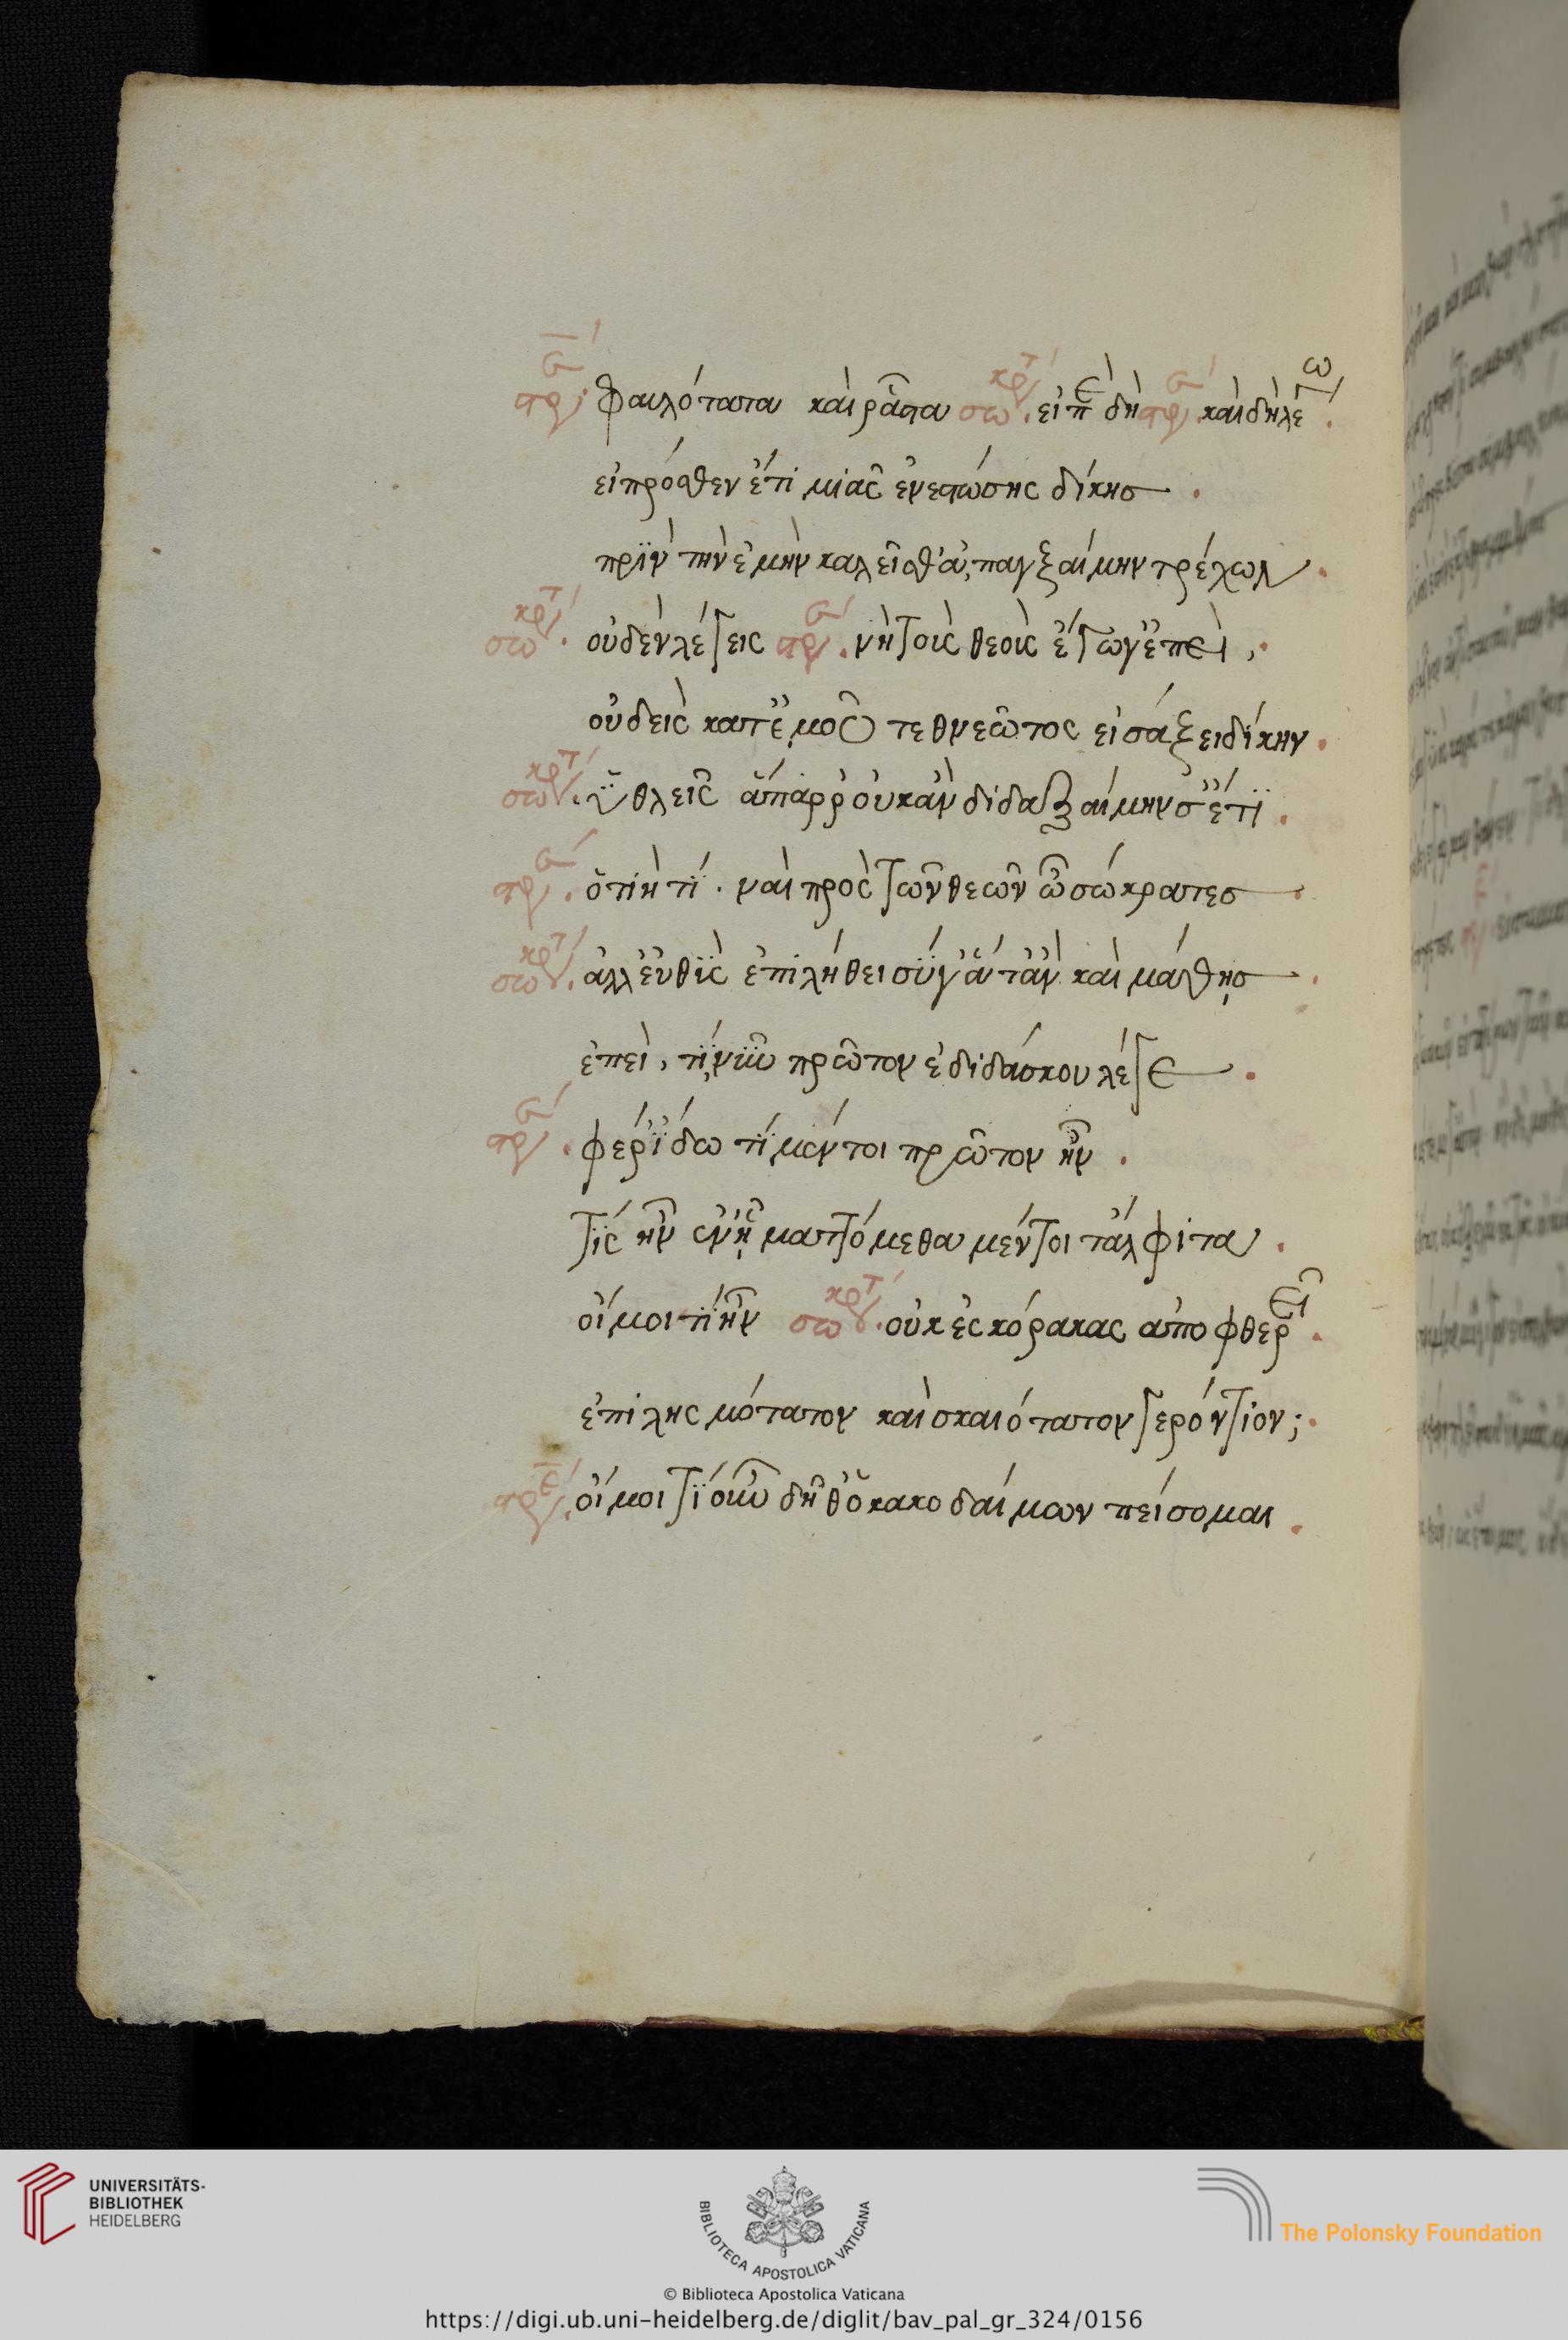 πρε. φαυλότατα καὶ ρᾶστα σωκρτ. εἰπὲ δὴ πρε. καὶ δὴ λέγω.
εἰ πρόσθεν ἔτι μιᾶς ἐνεστώσης δίκησ.
πρϊν τὴν ἐμὴν καλεῖσθ' ἀπαγξαίμην τρέχων.
σωκρτ. οὐδὲν λέγεις πρε. νὴ τοὺς θεοὺς ἔγωγ' ἐπεὶ,.
οὐδεὶς κατ' ἐμοῦ τεθνεῶτος εἰσάξει δίκην.
σωκρτ. ὑθλεῖς ἄπαρρ' οὐκ ἂν διδαξαίμην σ' ἔτϊ.
πρε. ὅτιὴ τί. ναὶ πρὸς τῶν θεῶν ὦ σώκρατεσ.
σωκρτ. ἀλλ' εὐθὺς ἐπιλήθει σύγ' ἅττ' ἂν καὶ μάθῃσ.
ἐπεὶ, τί νῦν πρῶτον ἐδιδάσκου λέγε.
πρε. φέρ' ἴδω τί μέντοι πρῶτον ἦν.
τίς ἦν ἐν ᾗ ματτόμεθα μέντοι τἄλφιτα.
οἴμοι τίς ἦν σωκρτ. οὐκ ἐς κόρακας ἀποφθερεῖ.
ἐπιλησμότατον καὶ σκαιότατον γερόντιον;.
πρε. οἴμοι τί οὖν δῆθ' ὁ κακοδαίμων πείσομαι.
UNIVERSITÄTS-
BIBLIOTHEK
HEIDELBERG
BIBLIOTECA APOSTOLICA VATICANA
The Polonsky Foundation
© Biblioteca Apostolica Vaticana
https://digi.ub.uni-heidelberg.de/diglit/bav_pal_gr_324/0156